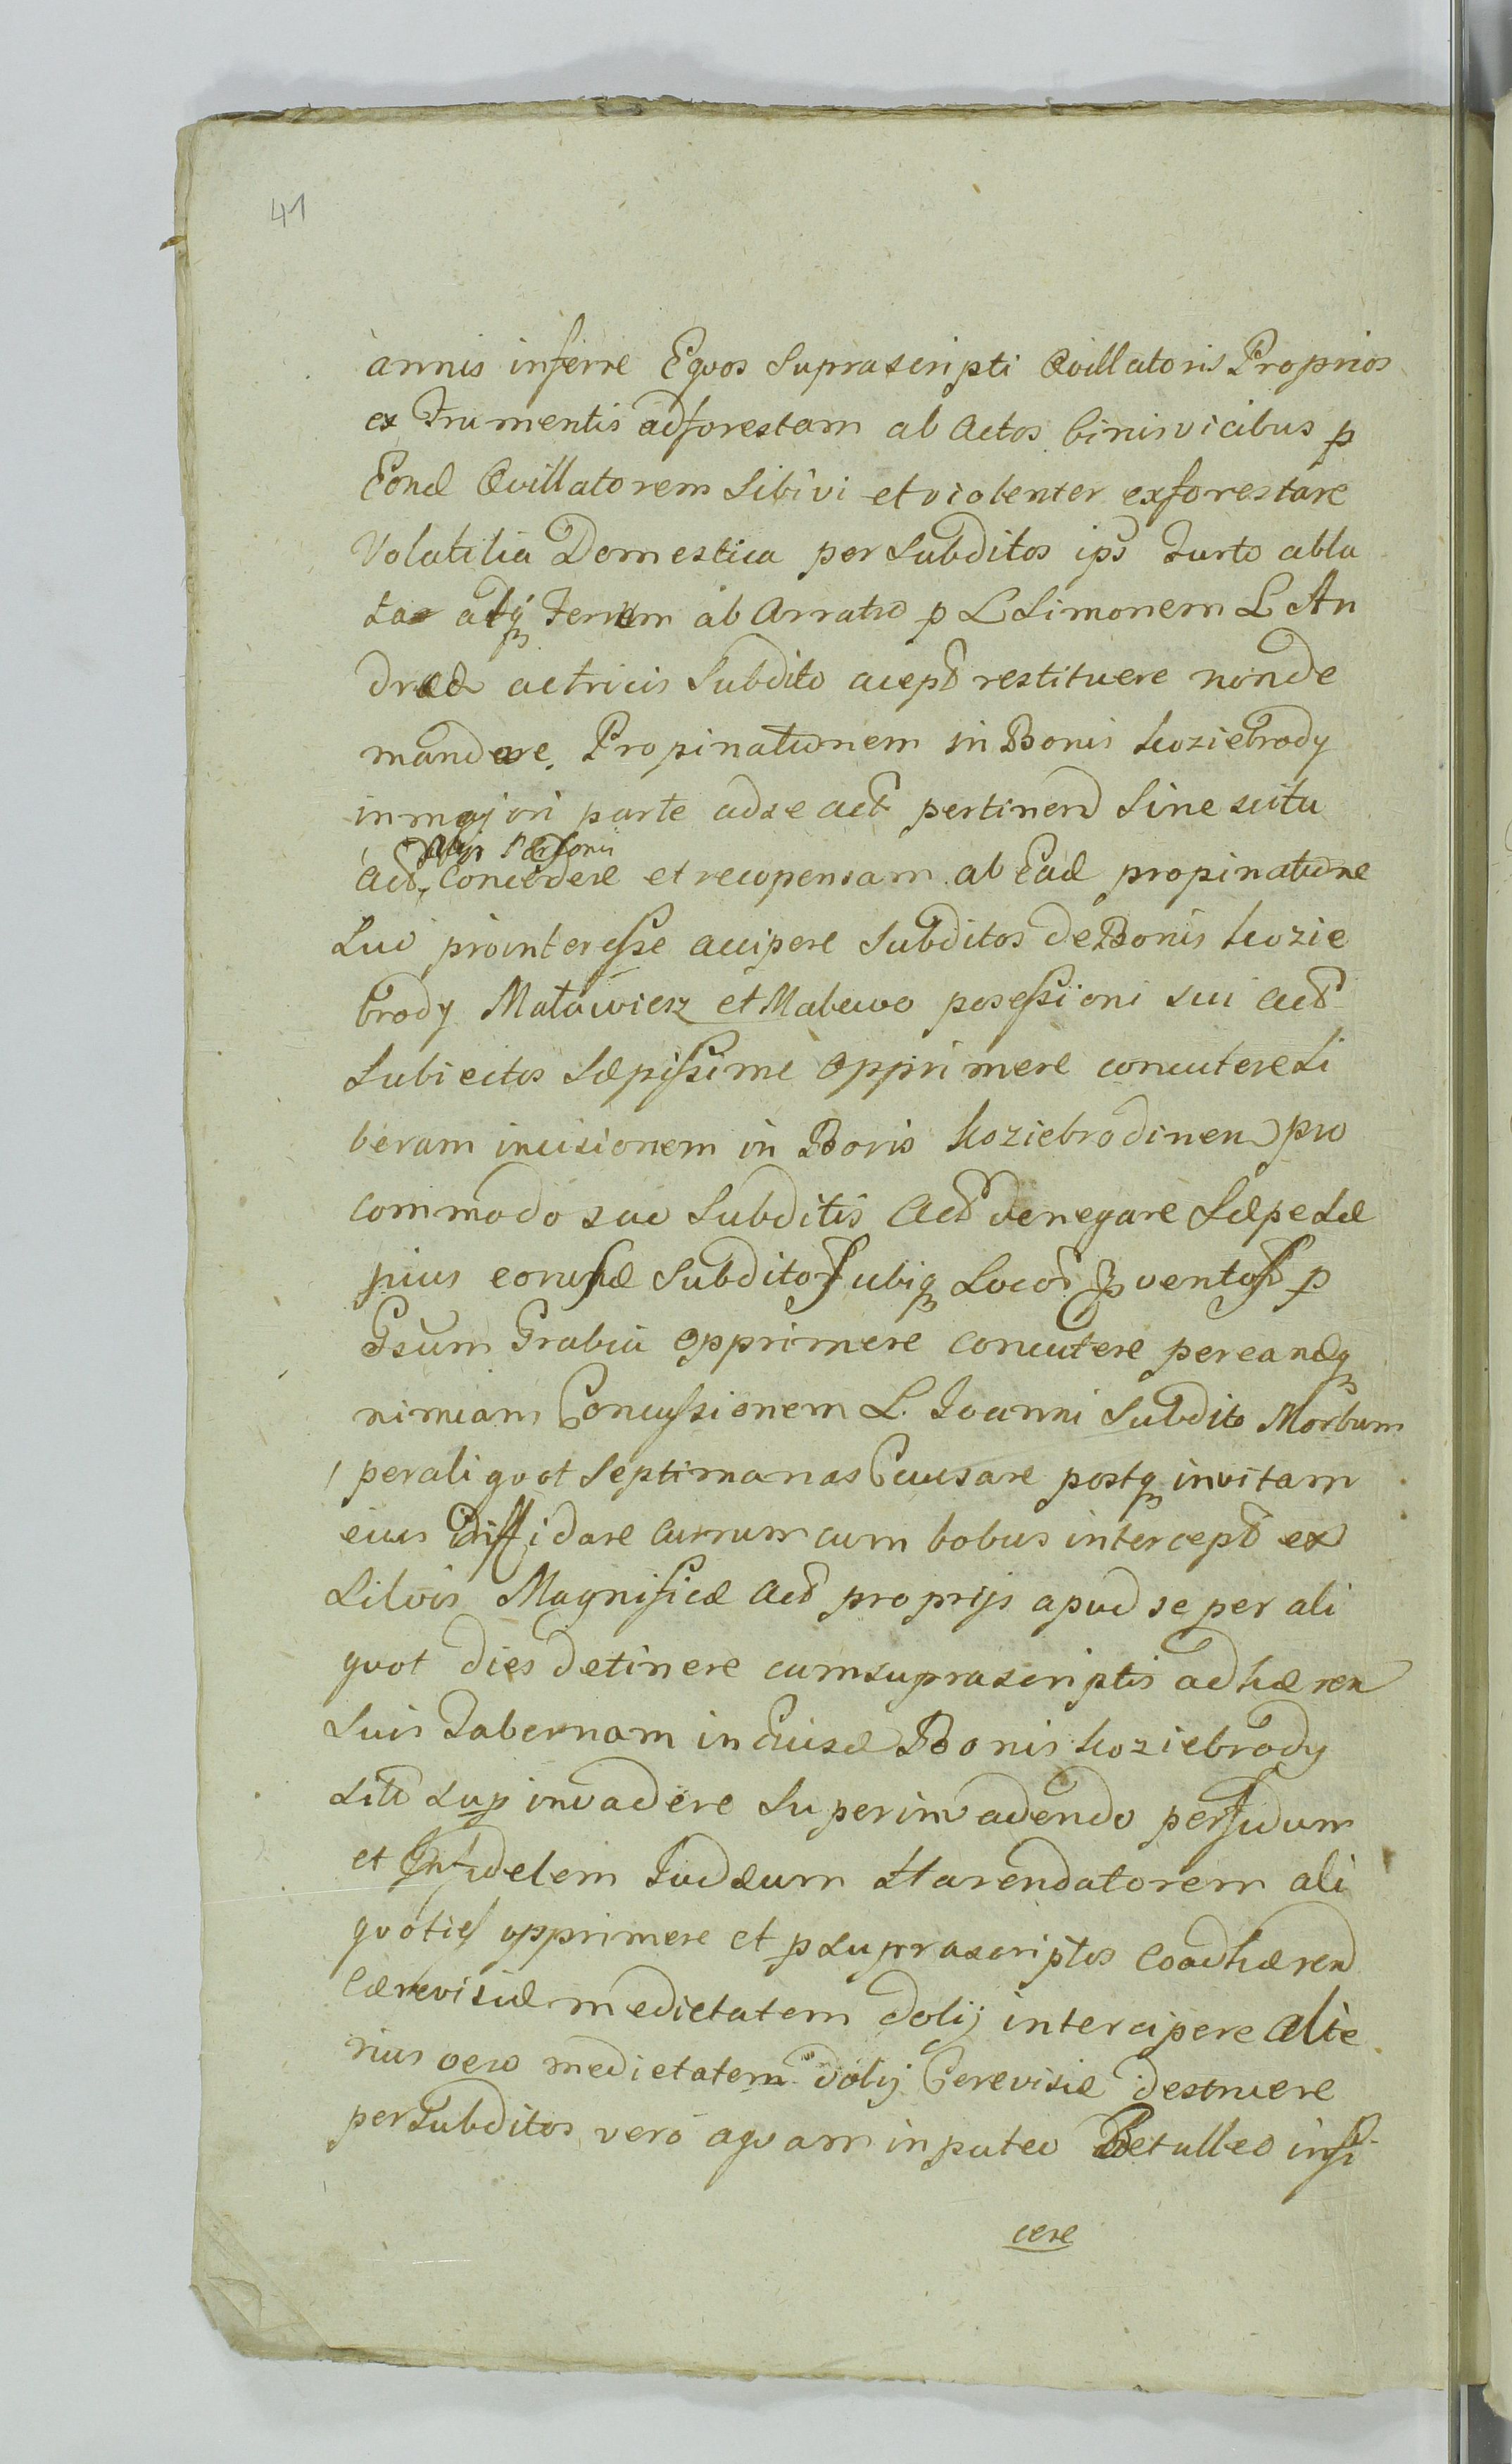 41
annis inferre Equos Suprascripti Qvillatoris Proprios
ex Frumentis adforestam ab Actos binis vicibus p
Eond Qvillatorem Sibi vi et violenter exforestare
Volatilia Domestica per Subditos ips Furto abla
ta atq Ferrum ab Arratro p L Simonem L An
dreæ actricis Subdito acept restituere non de
mandare. Propinationem in Bonis Koziebrody
in majori parte ad se act pertinend Sine scitu
Alys Personis
Act Concedere et recopensam ab Ead propinatione
Suo pro interesse accipere Subditos de Bonis Kozie
brody Maławiesz et Malewo posessioni sui Act
Subiectos Sæpissime Opprimere concutere Li
beram incisionem in Bonis Koziebrodinen pro
commodo suo Subditis Act denegare Sæpe Sæ
pius eorund Subditos ubiq Locor Inventos p
Grabiu opprimere concutere per eandq
nimiam Concussionem L. Joanni Subdito Morbum
per aliquot Septimanas Causare postq in vitam
eius Diffidare currum cum bobus intercept ex
Silvis Magnificæ Act proprijs apud se per ali
quot dies detinere cum suprascriptis adhæren
Suis Tabernam in Bonis Koziebrody
Sit Sup invadere Superinvadendo perfidum
et Infidelem Judæum Harendatorem ali
quoties opprimere et p Suprascriptos Coadhærend
Cærevisiæ medietatem dolij intercipere Alte
rius vero medietatem dolij Cerevisiæ destruere
per Subditos vero aquam in puteo Betulleo infi
cere